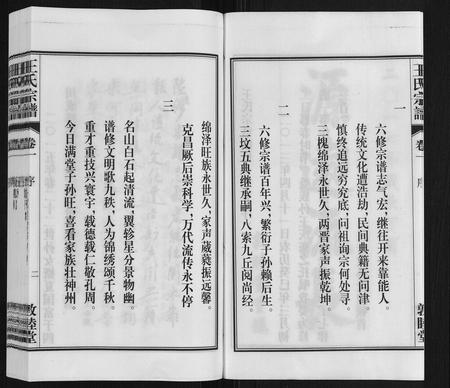 王氏宗譜
卷一
序
敦睦堂
一
六修宗谱志气宏，继往开来靠能人。
传统文化遭浩劫，民间典籍无问津。
慎终追远穷究底，问祖询宗何处寻。
三槐绵泽永世久，两晋家声振乾坤。
二
六修宗谱百年兴，繁衍子孙赖后生。
三坟五典继承嗣，八索九丘阅尚经。
绵泽旺族永世久，家声葳蕤振远馨。
克昌厥后崇科学，万代流传永不停
三
名山白石起清流，翼轸星分景物幽。
谱修文明歌九秩，人为锦绣颂千秋。
重才重技兴寰宇，载德载仁敬孔周。
今日满堂子孙旺，喜看家族壮神州。
王氏宗譜
卷一
序
二
敦睦堂